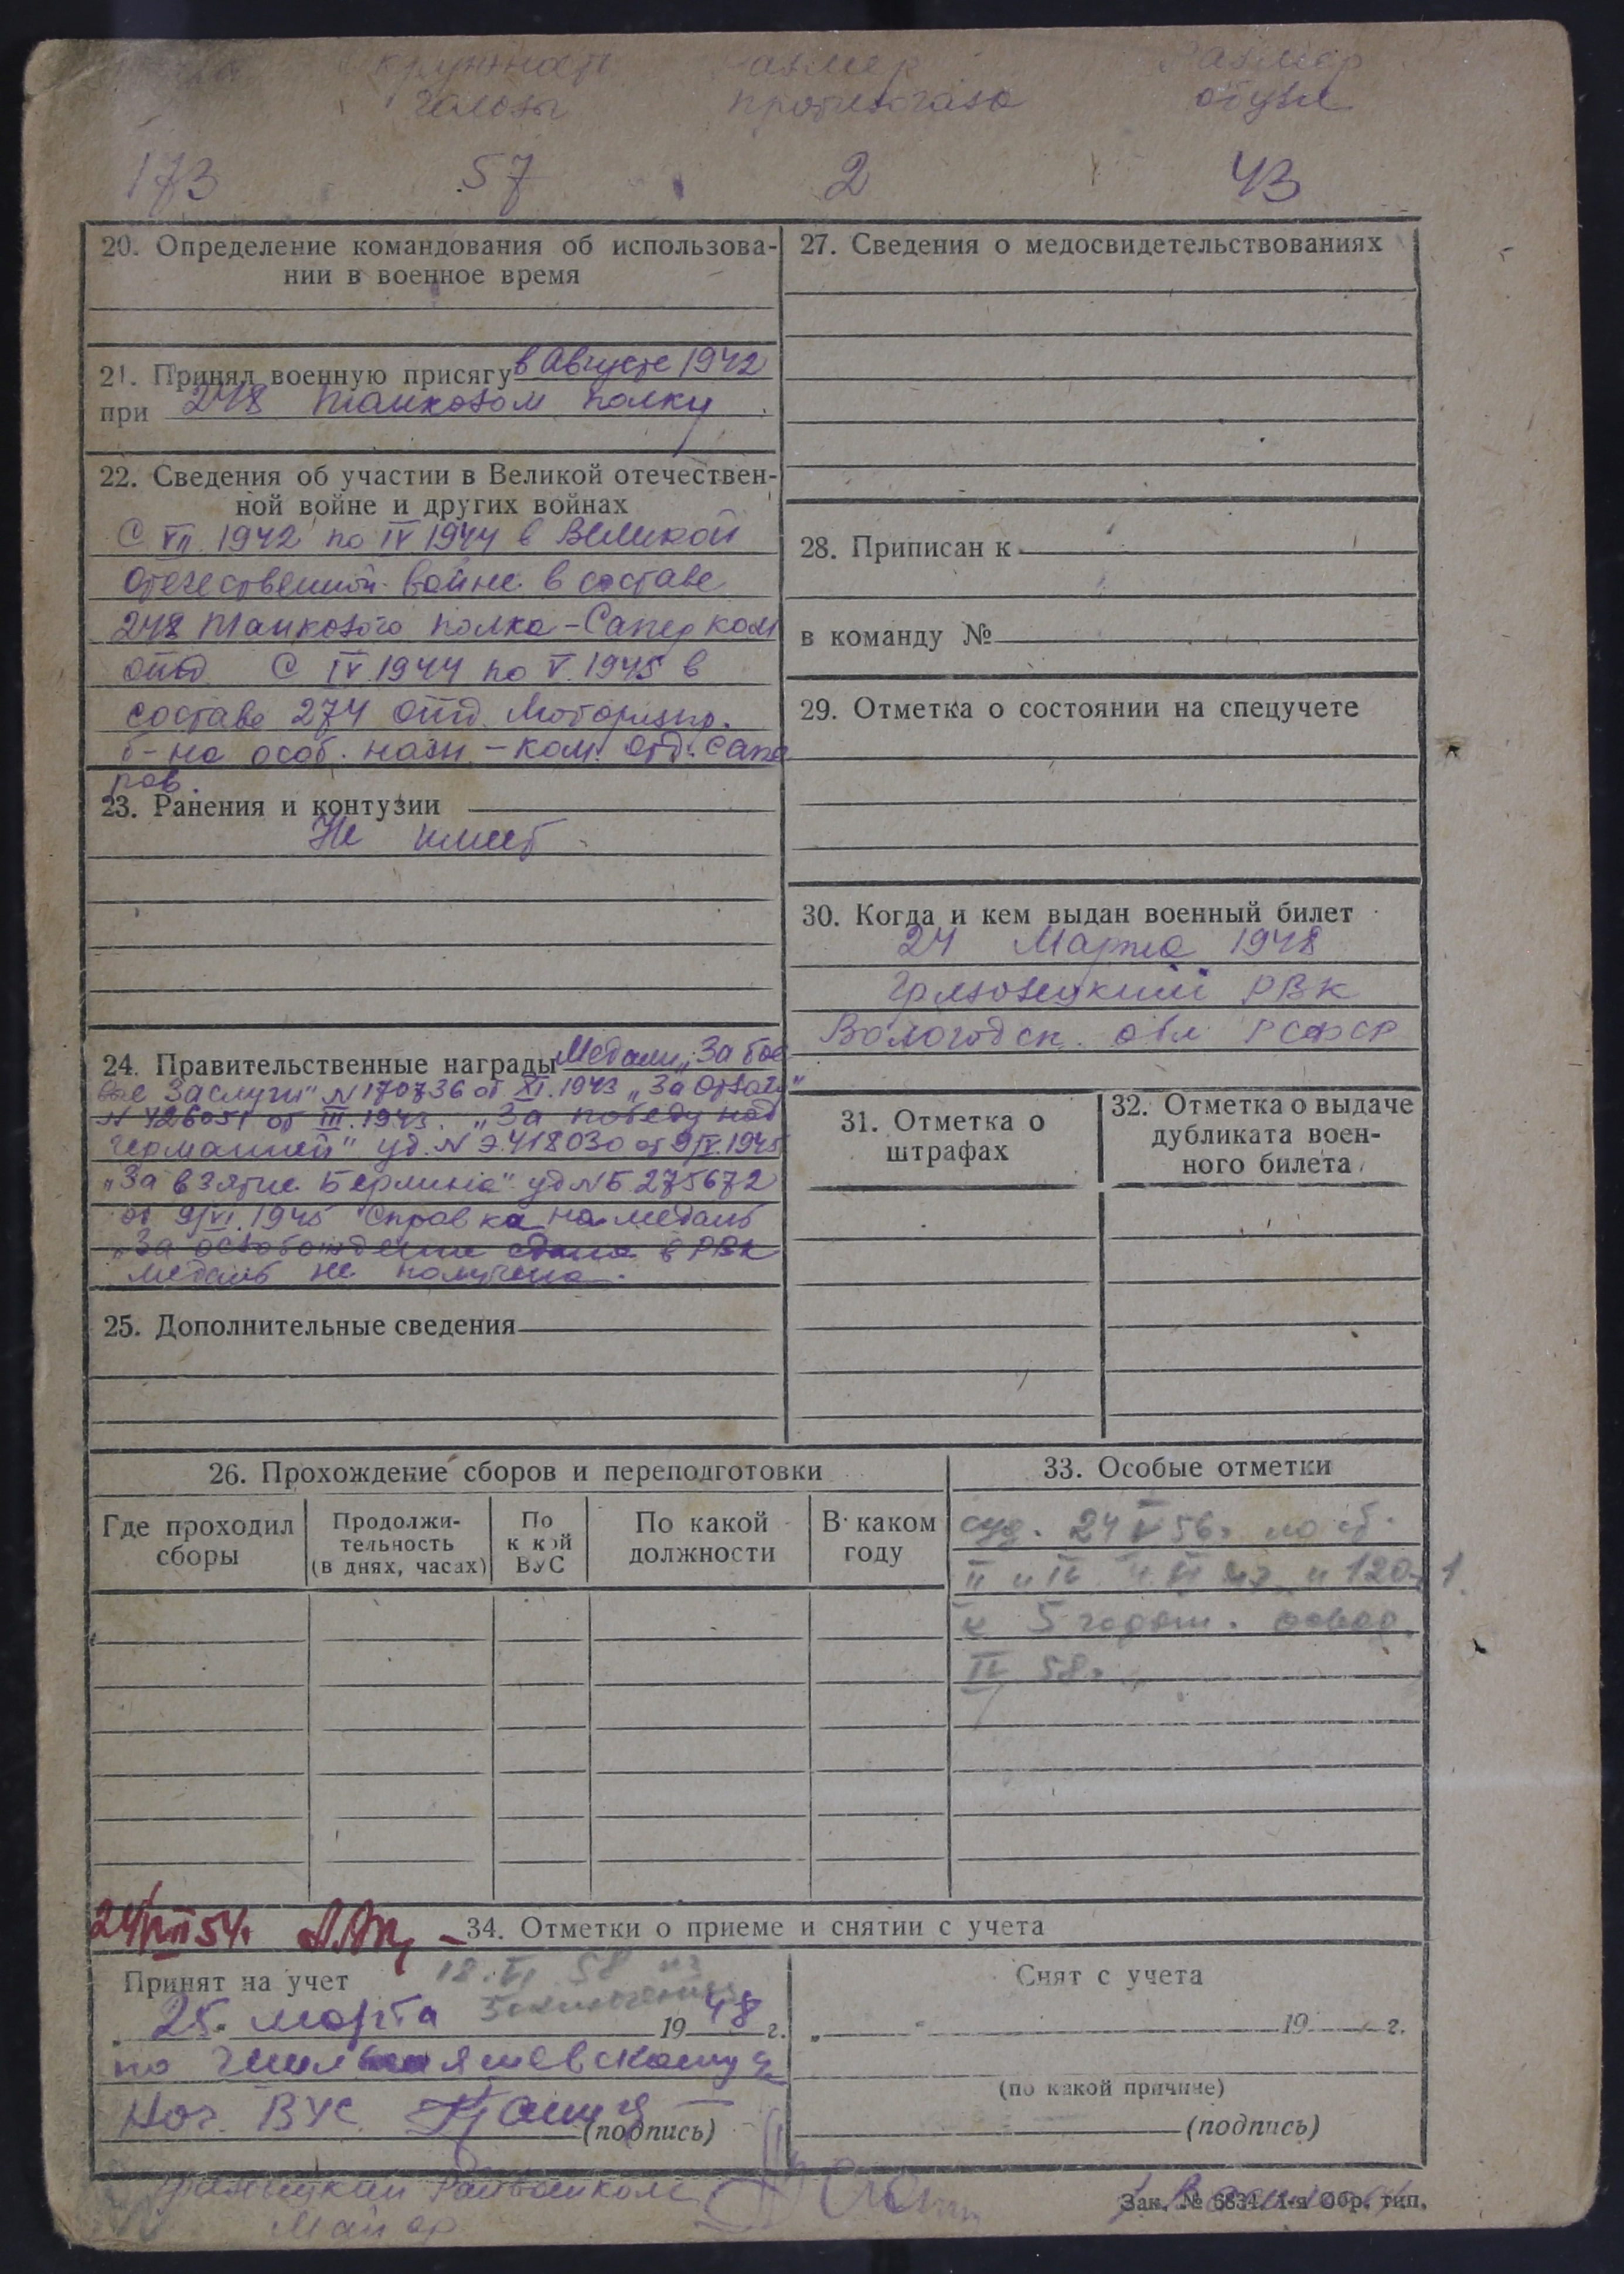 размер размер
головы противогаза обуви
173 57 2 43
20. Определение командования об использова-
нии в военное время
21. Принял военную присягу в Августе 1942
при 248 танковом полку
22. Сведения об участии в Великой отечествен-
ной войне и других войнах
С VII. 1942 по IV 1944 в Великой
отечественной войне в составе
248 танкового полка - Сапер ком
отд С IV. 1944 по V. 1945 в
составе 274 отд. Моториз.
б-на особ. назн. - ком. отд. сапе
ров.
23. Ранения и контузии
Не имеет
24. Правительственные награды Медали „За бое
вые Заслуги" N 170736 от XI. 1943 „За Отвагу"
N 426051 от III. 1943. „За победу над
германией" уд. N Э.418030 от 9/V. 1945
„За взятие Берлина" уд N Б 275672
от 9/VI. 1945 Справка на медаль
„За освобождение сдана в РВК
медаль не получена.
25. Дополнительные сведения
27. Сведения о медосвидетельствованиях
28. Приписан к
в команду №
29. Отметка о состоянии на спецучете
30. Когда и кем выдан военный билет
24 Марта 1948
Грязовецкий РВК
Вологодск. обл РСФСР
31. Отметка о
штрафах
32. Отметка о выдаче
дубликата воен-
ного билета
26. Прохождение сборов и переподготовки
Где проходил
сборы
Продолжи-
тельность
(в днях, часах)
По
к кой
ВУС
По какой
должности
В каком
году
33. Особые отметки
суд. 24 V 56г.
II и IV
к 5 годам.
IV 58г.
24/VII 54г.
34. Отметки о приеме и снятии с учета
Принят на учет 18. VI 58 из
заключения
25. марта 1948 г.
по
Нач. ВУС
(подпись)
Снят с учета
„ " 19 г.
(по какой причине)
(подпись)
Грязовецкий Райвоенком
Майор
Зак. № 6834. 1-я Обр. тип.